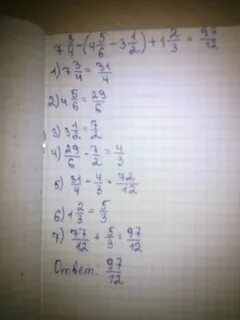 7 3/4 - (4 5/6 - 3 1/2) + 1 2/3 = 97/12
1) 7 3/4 = 31/4
2) 4 5/6 = 29/6
3) 3 1/2 = 7/2
4) 29/6 - 7/2 = 4/3
5) 31/4 - 4/3 = 72/12
6) 1 2/3 = 5/3
7) 77/12 + 5/3 = 97/12
Ответ: 97/12